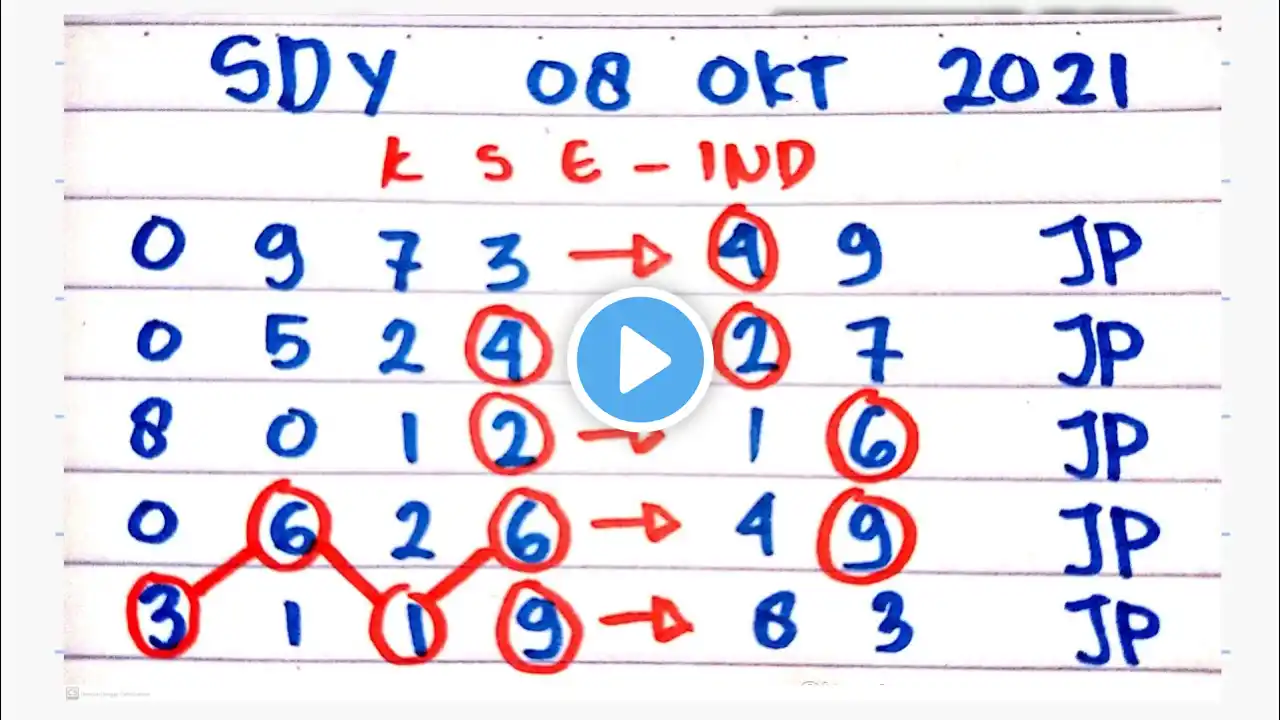 SDY 08 OKT 2021
K S E - IND
0 9 7 3 → 4 9 JP
0 5 2 4 2 7 JP
8 0 1 2 → 1 6 JP
0 6 2 6 → 4 9 JP
3 1 1 9 → 8 3 JP